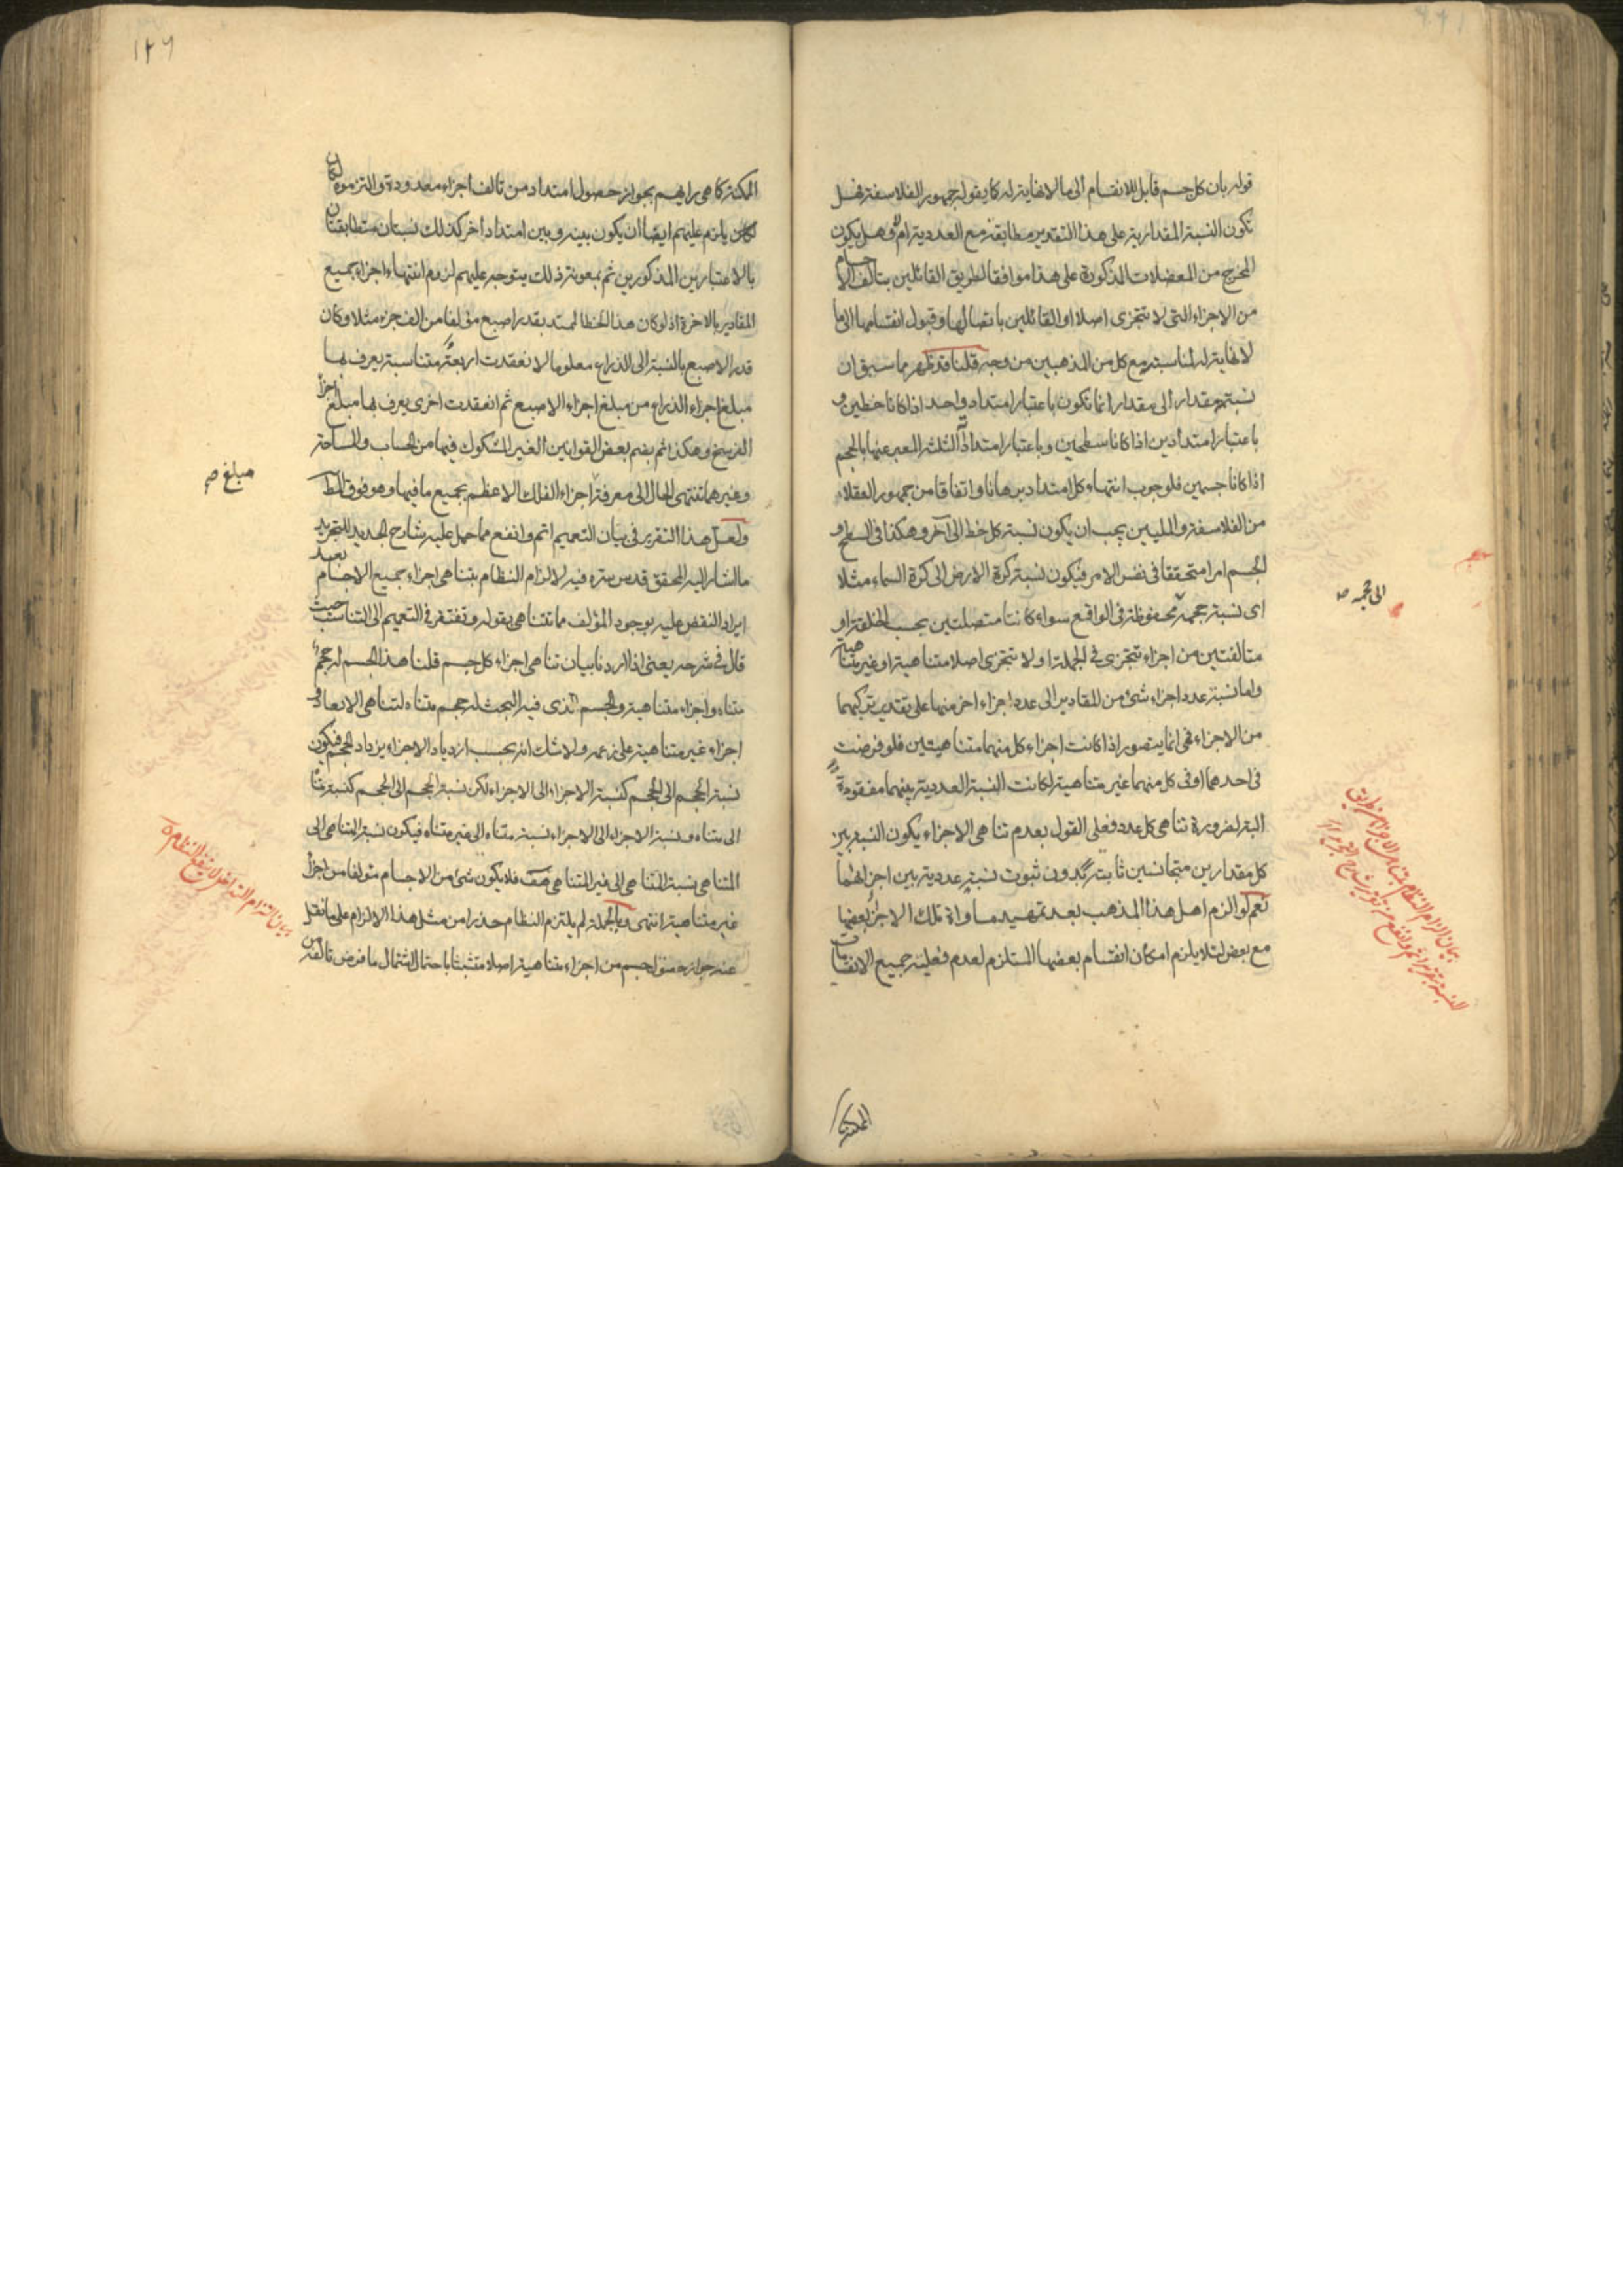 قوله بان كل جسم قابل للانقسام الى ما لا نهاية له كما يقوله جمهور الفلاسفة فهل
تكون النسبة المقدارية على هذا التقدير مطابقة مع العددية ام لا وهل يكون
المخرج من المعضلات المذكورة على هذا موافقا لطريق القائلين بتالف الاجسام
من الاجزاء التى لا تتجزى اصلا او القائلين باتصالها وقبول انقسامها الى ما
لا نهاية له لمناسبته مع كل من المذهبين من وجه قلنا قد ظهر مما سبق ان
نسبة مقدار الى مقدار انما تكون باعتبار امتداد واحد اذا كانا خطين و
باعتبار امتدادين اذا كانا سطحين وباعتبار امتداداته الثلثة المعبر عنها بالحجم
اذا كانا جسمين فلوجوب انتهاء كل امتداد برهانا واتفاقا من جمهور العقلاء
من الفلاسفة والمليين يجب ان يكون نسبة كل خط الى آخر وهكذا فى السطح و
الجسم امرا متحققا فى نفس الامر فيكون نسبة كرة الارض الى كرة السماء مثلا
اى نسبة حجمه محفوظة فى الواقع سواء كانتا متصلتين بحسب الخلقة او
متالفتين من اجزاء تتجزى فى الجملة او لا تتجزى اصلا متناهية او غير متناهية
واما نسبة عدد اجزاء شئ من المقادير الى عدد اجزاء اخر منها على تقدير تركبهما
من الاجزاء فهى انما يتصور اذا كانت اجزاء كل منهما متناهيتين فلو فرضت
فى احدهما او فى كل منهما غير متناهية لكانت النسبة العددية بينهما مفقودة
البتة لضرورة تناهى كل عدد فعلى القول بعدم تناهى الاجزاء يكون النسبة بين
كل مقدارين متجانسين ثابتة بدون ثبوت نسبة عددية بين اجزائهما
نعم لو الزم اهل هذا المذهب بعد تمهيد مساواة تلك الاجزاء بعضها
مع بعض لئلا يلزم امكان انقسام بعضها المستلزم لعدم فعلية جميع الانقسامات
الى حجمه ص
الممكنة كما هى رايهم بجواز حصول امتداد من تالف اجزاء معدودة والتزموه لكان
يلزم عليهم ايضا ان يكون بينه وبين امتداد آخر كذلك نسبتان متطابقتان
بالاعتبارين المذكورين ثم بمعونة ذلك يتوجه عليهم لزوم انتهاء اجزاء جميع
المقادير بالاخرة اذ لو كان هذا الخط الممتد بقدر اصبع مؤلفا من الف جزء مثلا وكان
قدر الاصبع بالنسبة الى الذراع معلوما لانعقدت اربعة متناسبة يعرف بها
مبلغ اجزاء الذراع من مبلغ اجزاء الاصبع ثم انعقدت اخرى يعرف بها مبلغ اجزاء
الفرسخ وهكذا ثم بضم بعض القوانين الغير المشكوك فيها من الحساب والمساحة
وغيرهما تنتهى الحال الى معرفة اجزاء الفلك الاعظم بجميع ما فيها وهو فوق المط
ولعل هذا التقرير فى بيان التعميم اتم وانفع مما حمل عليه شارح الجديد للتجريد
ما اشار اليه المحقق قدس سره فيه لالزام النظام بتناهى اجزاء جميع الاجسام بعد
ايراد النقض عليه بوجود المؤلف مما تتناهى بقوله وتفتقر فى التعميم الى التناسب حيث
قال فى شرحه يعنى اذا اردنا بيان تناهى اجزاء كل جسم قلنا هذا الجسم له حجم
متناه واجزاء متناهية والجسم الذى فيه البحث له حجم متناه لتناهى الابعاد و
اجزاء غير متناهية على زعمه ولا شك انه بحسب ازدياد الاجزاء يزداد الحجم فيكون
نسبة الحجم الى الحجم كنسبة الاجزاء الى الاجزاء لكن نسبة الحجم الى الحجم كنسبة متناه
الى متناه ونسبة الاجزاء الى الاجزاء نسبة متناه الى غير متناه فيكون نسبة المتناهى الى
المتناهى نسبة المتناهى الى غير المتناهى هف فلا يكون شئ من الاجسام مؤلفا من اجزاء
غير متناهية انتهى وبالجملة لم يلتزم النظام حذرا من مثل هذا الالزام على ما نقل
عنه جواز حصول جسم من اجزاء متناهية اصلا متشبثا باحتمال اشتمال ما فرض تالفه من
مبلغ ص
بيان التزام التداخل لا ينفع النظام